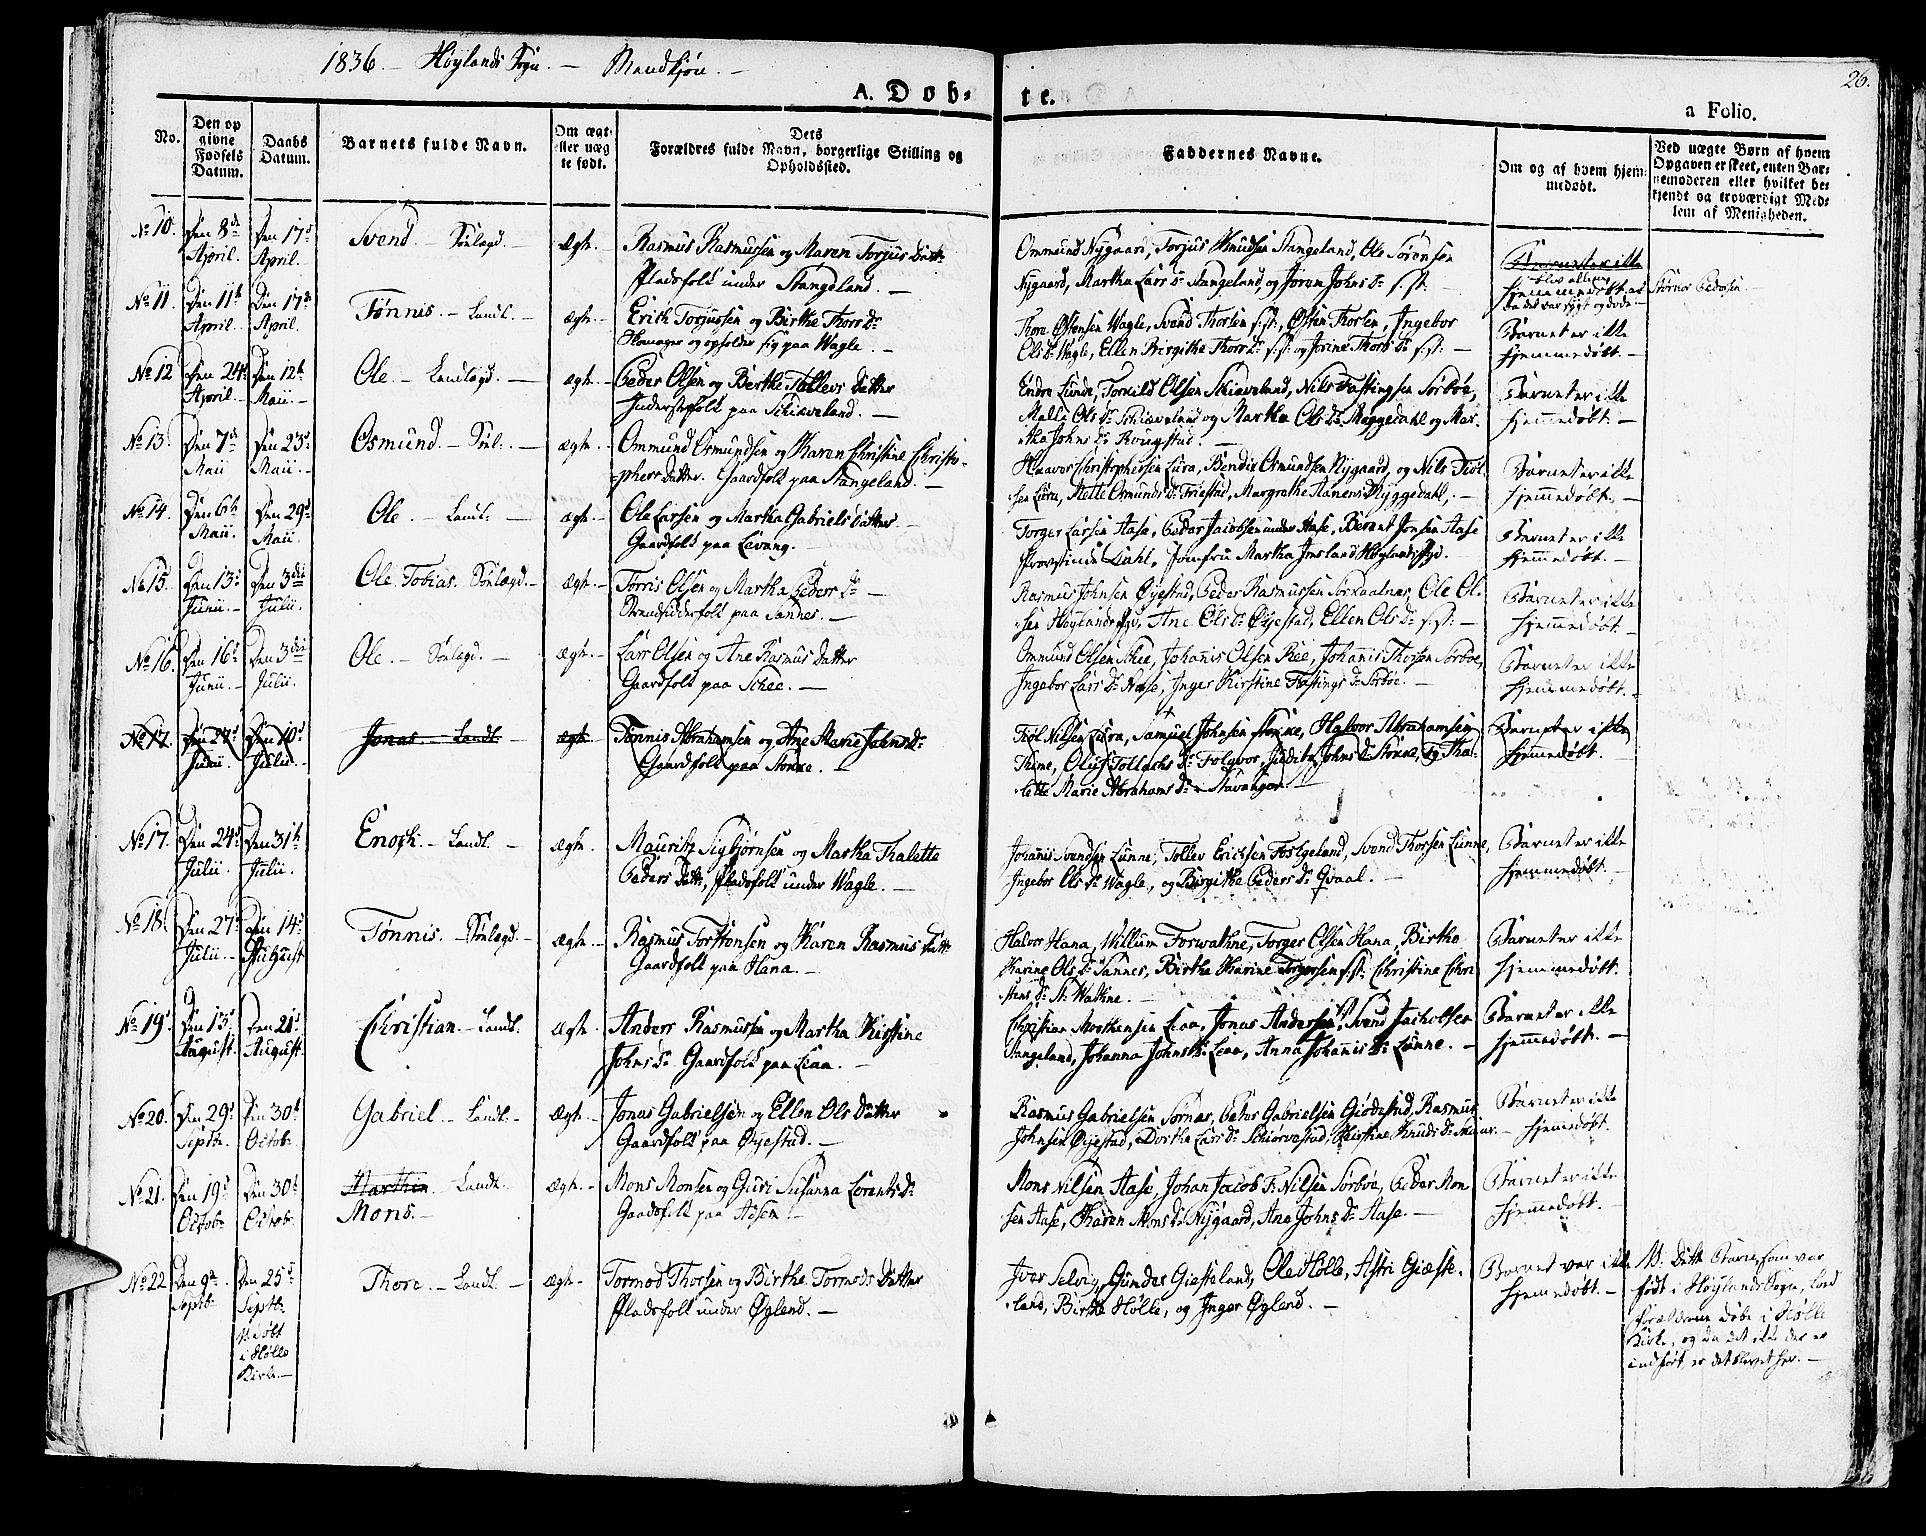 1836. — Høylands Sogn. — Mandkjøn. —
26.
A. Döb-
te.
a Folio.
No.
Den op
givne
Fødsels
Datum.
Daabs
Datum.
Barnets fulde Navn.
Om ægt
eller uæg
te født.
Dets
Forældres fulde Navn, borgerlige Stilling og
Opholdssted.
Faddernes Navne.
Om og af hvem hjem-
medøbt.
Ved uægte Børn af hvem
Opgaven er skeet, enten Bar-
nemoderen eller hvilket be-
kjendt og troværdigt Med-
lem af Menigheden.
No 10. Den 8de April. Den 17de April. Svend. — Sönlagd. — Ægte. Rasmus Rasmussen og Maren Torjus Datter
Pladsfolk under Stangeland. —
Ommund Nygaard, Torjus Knudsen Stangeland, Ole Sörensen
Nygaard, Martha Lars Dr Stangeland, og Joren Johns Dr s. st: —
Barnet er ikke
hjemmedøbt
No 11. Den 11te April. Den 17de April. Tønnis. — Landl. — Ægte. Erich Torjussen og Birthe Thors Dr
opholder sig paa Wagle. —
Thore Østensen Wagle, Svend Thorsen s. st:, Østen Thorsen, Ingebor
Ols Dr Wagle, Ellen Birgithe Thors Dr s. st: og Serine Thors Dr s. st: —
Barnet er ikke
hjemmedøbt. —
No 12 Den 24de April. — Den 12te Maii. — Ole. — Landlagd. — Ægte. Peder Olsen og Berthe Tollevs Datter
Inderstefolk paa Schiæveland. —
Endre Lunde, Torkild Olsen Schiæveland, Nils Tastingsen Sörböe,
Malle Ols Dr Schiæveland og Martha Ols Dr Myggedahl og Mar-
tha Johns Dr Rougstad. —
Barnet er ikke
hjemmedøbt. —
No 13. Den 7de Maii Den 23de Maii. — Osmund. — Sönl. — Ægte. — Ommund Osmundsen og Karen Christine Christo-
phers Datter. Gaardfolk paa Stangeland. —
Haavor Christophersen Lura, Bendix Osmundsen Nygaard, og Nils Tiöl-
sen Lura, Mette Osmunds Dr Friestad, Margrethe Aanens Dr Myggedahl. —
Barnet er ikke
hjemmedøbt. —
No 14. Den 6te Maii. Den 29de Maii. Ole. — Landl. — Ægte. — Ole Larsen og Martha Gabriels Datter. —
Gaardfolk paa Levang. —
Torger Larsen Aase, Peder Jacobsen under Aase, Berent Jonsen Aase
Provstinde Dahl, Jomfru Martha
Barnet er ikke
hjemmedøbt. —
No 15. Den 13de Junii. — Den 3die Julii. Ole Tobias. Sönlagd. — Ægte. — Torris Olsen og Martha Peders Dr —
Strandsidderfolk paa Sannes. —
Rasmus Johnsen Øyestad, Peder Rasmussen Ole Ol-
sen Høyland, Ane Ols Dr Øyestad, Ellen Ols Dr s. st: —
Barnet er ikke
hjemmedøbt. —
No 16. Den 16de Junii. — Den 3die Julii. Ole. — Sönlagd. — Ægte. Lars Olsen og Ane Rasmus Datter
Gaardfolk paa Schee. —
Ommund Olsen Schee, Johanis Olsen Ree, Johanis Thorsen Sörböe,
Ingebor Lars Dr Aase, Inger Kirstine Tastings Dr Sörböe. —
Barnet er ikke
hjemmedøbt. —
No 17. Den 27de Junii. Den 10de Julii. Jonas — Landl. Ægte. Tønnis Abrahamsen og Ane Marie Johns Dr
Gaardfolk paa Stonne. —
Tiöl Nilsen Lura, Samuel Johnsen Stonne, Halvor Abrahamsen
Thime, Oluf Tollachs Dr Folgvor, Judith Johns Dr Stonne, og Tha-
lette Marie Abrahams Dr Stavanger. —
Barnet er ikke
hjemmedøbt. —
No 17. Den 24de Julii. Den 31te Julii. Enoch. — Landl. — Ægte. Mauritz Sigbjørnsen og Martha Thalette
Peders Datter, Pladsfolk under Wagle. —
Johanis Svendsen Lunne, Tollev Ericksen Svend Thorsen Lunne,
Ingebor Ols Dr Wagle, og Birgithe Peders Dr Qvaal. —
Barnet er ikke
hjemmedøbt. —
No 18. Den 27de Julii. — Den 14de August Tønnis. — Sönlagd. — Ægte. — Rasmus Torstensen og Karen Rasmus Datter
Gaardfolk paa Hana. —
Halvor Hana, Willum Torwathne, Torger Olsen Hana, Birthe
Karine Ols Dr Sannes, Birtha Karine Torgersen s. st: Christine Chri-
stens Dr St. Wathne. —
Barnet er ikke
hjemmedøbt. —
No 19. Den 13de August. Den 21de August. Christian. — Landl. Ægte. Anders Rasmussen og Martha Kistine
Johns Dr Gaardfolk paa Leaa. —
Christian Morthensen Leaa, Jonas Andersen s. st: Svend Jacobsen
Stangeland, Johanna Johns Dr Leaa, Anna Johanis Dr Lunne. —
Barnet er ikke
hjemmedøbt. —
No 20. Den 29de Septbr. Den 30te Octobr. Gabriel — Landl. — Ægte. — Jonas Gabrielsen og Ellen Ols Datter
Gaardfolk paa Øyestad. —
Rasmus Gabrielsen Sornas, Peter Gabrielsen Giödestad, Rasmus
Johnsen Øyestad, Dorthe Lars Dr Schiörvestad, Christine Knuds Dr
Barnet er ikke
hjemmedøbt.
No 21. Den 19de Octobr. Den 30te Octobr. Marthin Landl. Ægte. —
Mons. —
Mons Monsen og Guri Susanna Lorents Dr
Gaardfolk paa Aasen. —
Mons Nilsen Aase, Johan Jacob T. Nilsen Sörböe, Peder Mon-
sen Aase, Karen Mons Dr Nygaard, Ana Johns Dr Aase. —
Barnet er ikke
hjemmedøbt. —
No 22 Den 9de Septbr. Den 25de Septbr. døbt i Hølle Kirke. — Thore. — Landl. — Ægte. — Tormod Thorsen og Birthe Tormods Datter
Pladsfolk under Øgland. —
Iver Selvig, Gunder Giesteland, Ole Hölle, Astri Gieste-
land, Birthe Hölle, og Inger Øgland. —
Barnet var ikke
hjemmedøbt. —
NB. Dette Barn som var
født i Høylands Sogn, lod
Forældrene døbe i Hölle
Kirke, og da det ikke der er
indført, er det blevet her. —